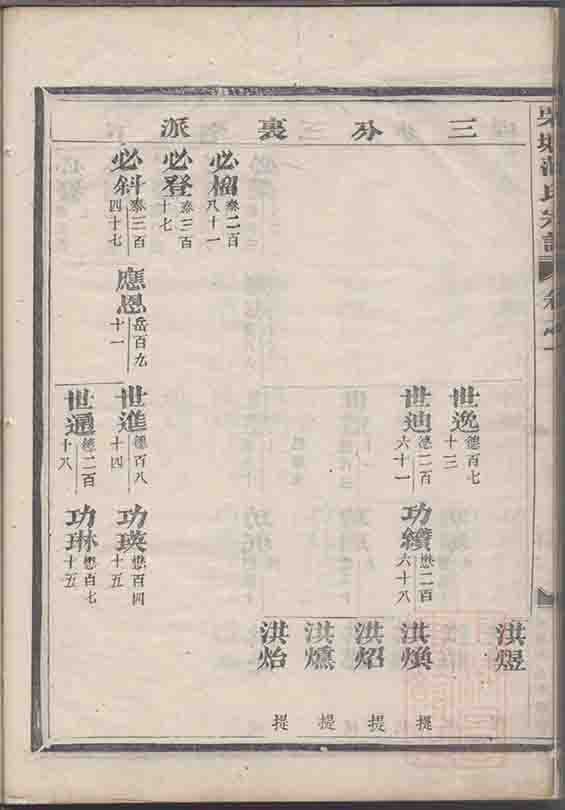 三分裏派
必榴 泰二百八十一
必登 泰三百十七
必斜 泰三百四十七
應恩 岳百九十一
世逸 德百七十三
世迪 德二百六十一
世進 德百八十四
世通 德二百十八
功績 懋二百六十八
功瑛 懋百四十五
功琳 懋百七十五
洪煜
洪煥 提
洪焰 提
洪燻 提
洪焰 提
氏宗譜
卷之一